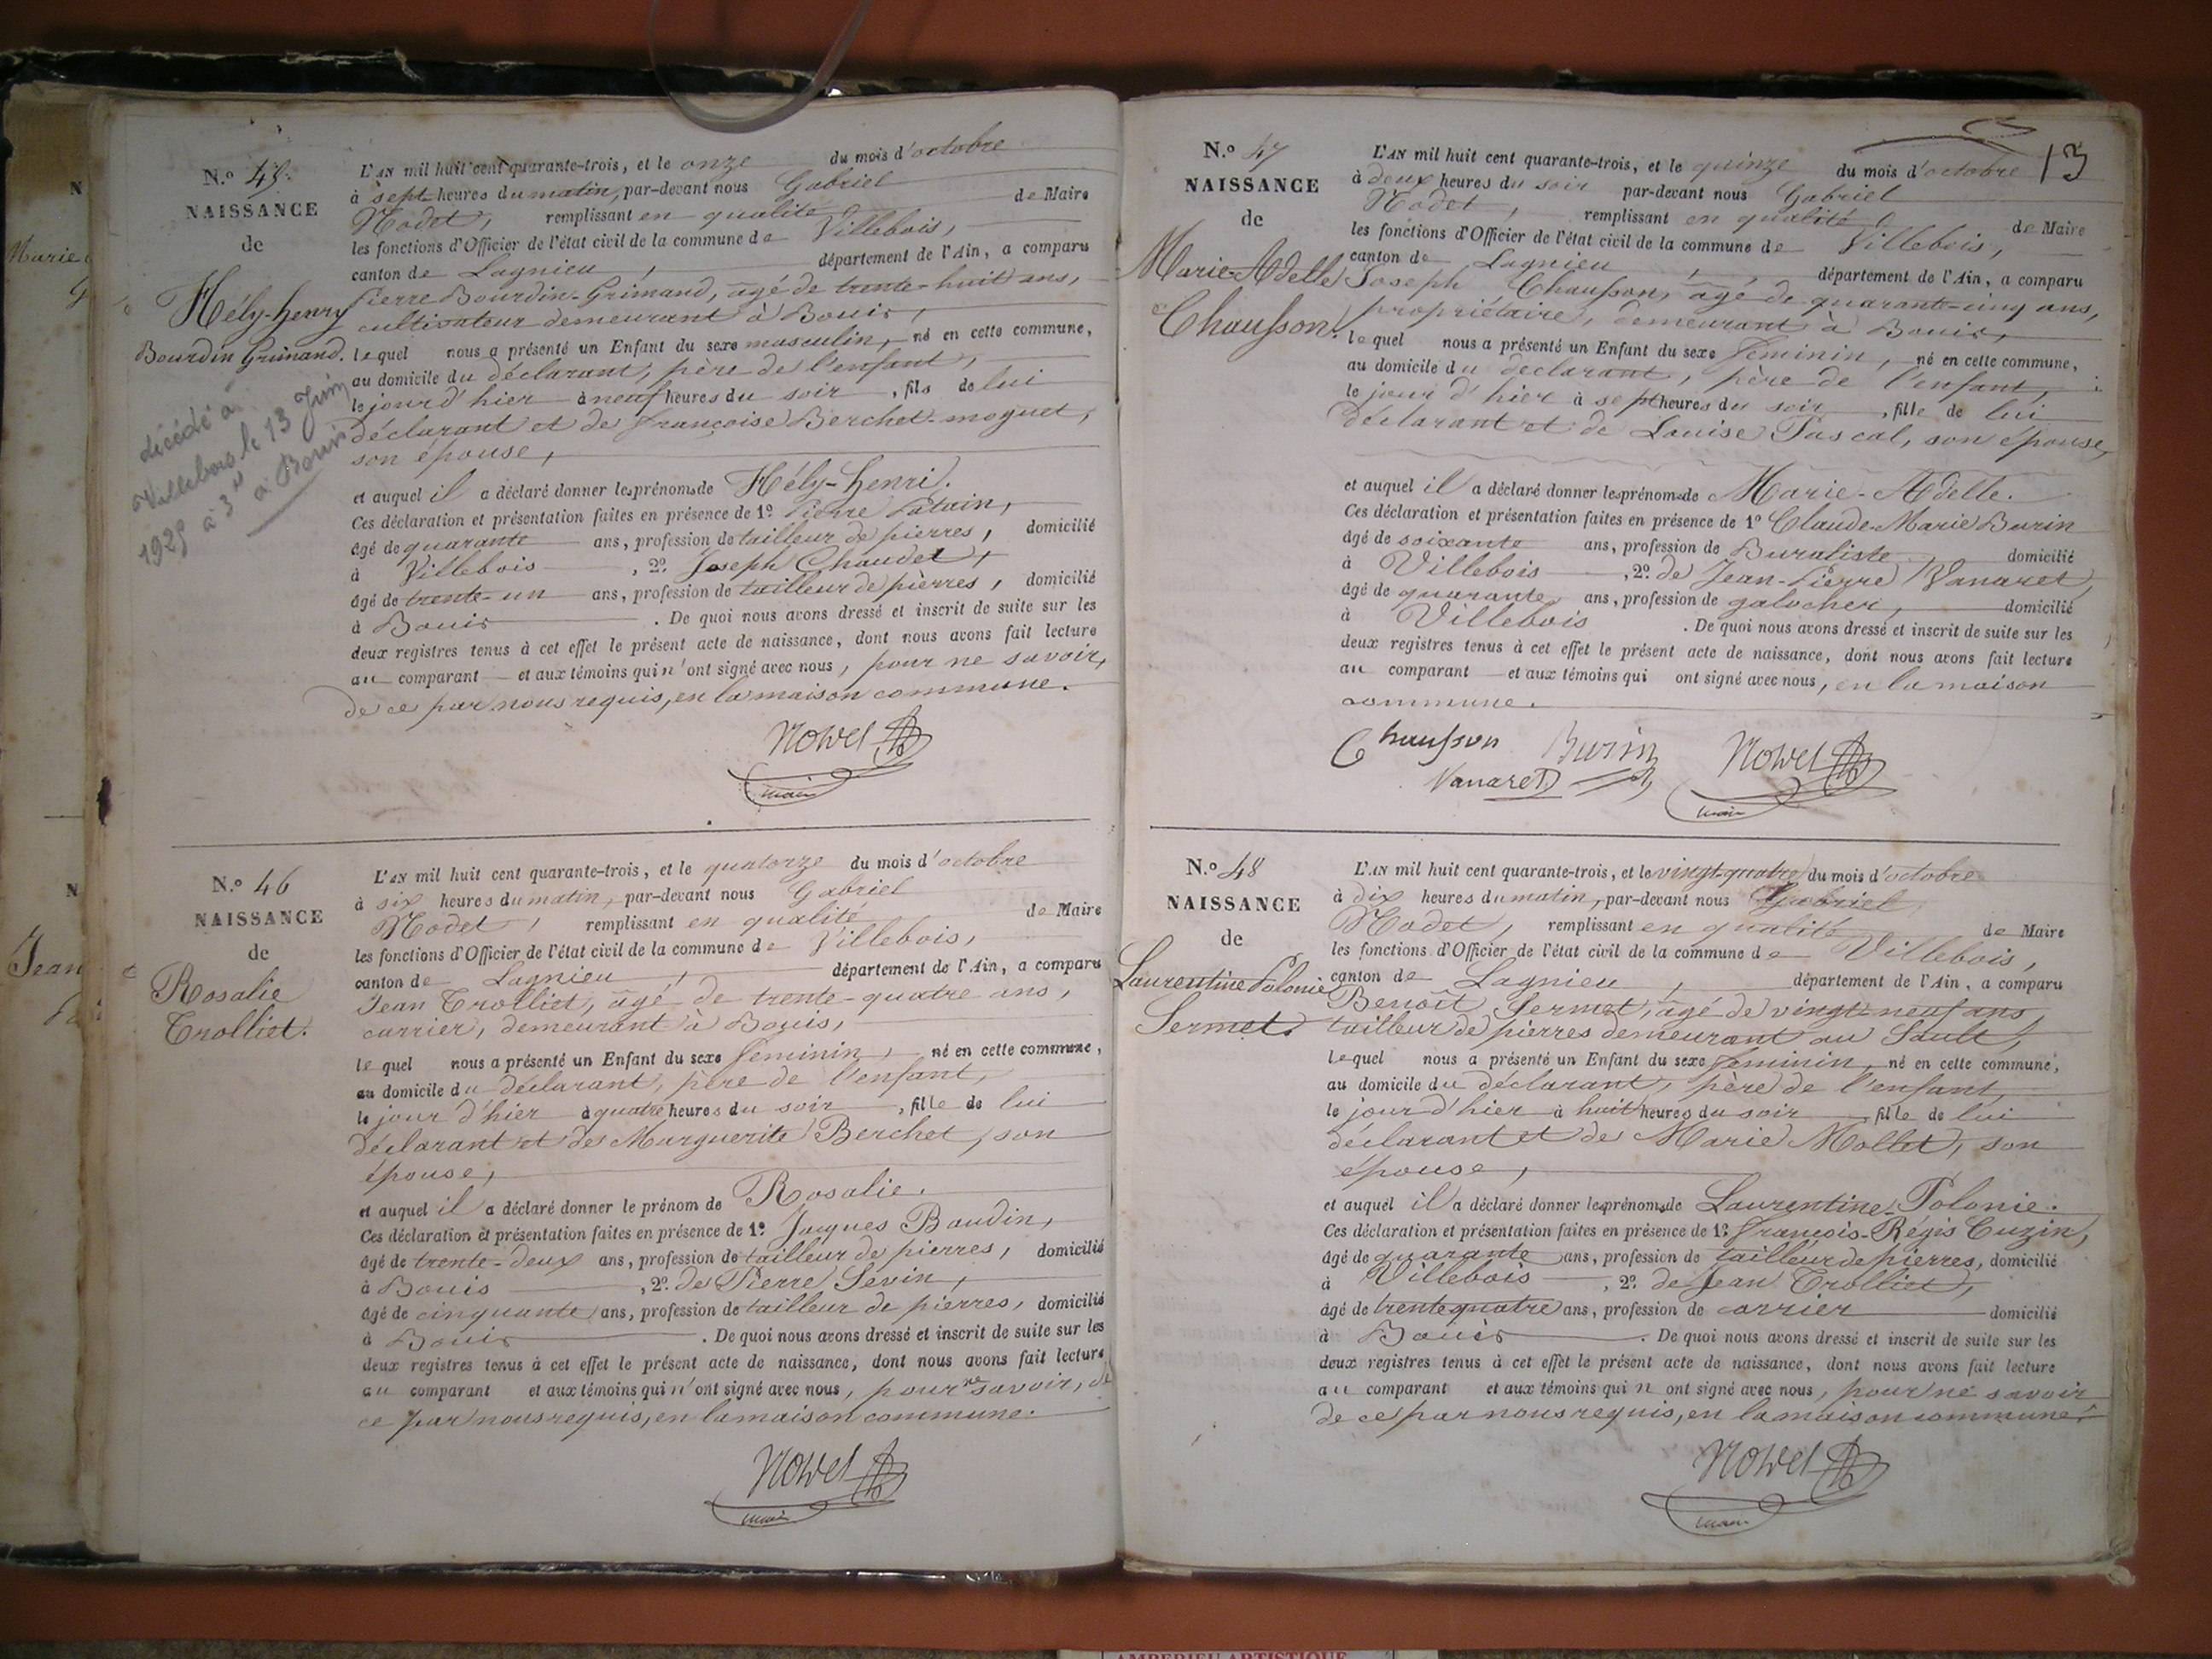 N.º 45.
NAISSANCE
de
Hély-henry
Bourdin Grimand.
décédé à
Villebois le 13 Juin
1925 à 3 h
à Bouis
L'AN mil huit cent quarante-trois, et le onze du mois d'octobre
à sept heures du matin, par-devant nous Gabriel
Nodet, remplissant en qualité de Maire
les fonctions d'Officier de l'état civil de la commune de Villebois,
canton de Lagnieu, département de l'Ain, a comparu
Pierre Bourdin-Grimand, âgé de trente-huit ans,
cultivateur demeurant à Bouis,
lequel nous a présenté un Enfant du sexe masculin, né en cette commune,
au domicile du déclarant, père de l'enfant,
le jour d'hier à neuf heures du soir, fils de lui
déclarant et de françoise Berchet-moguet,
son épouse,
et auquel il a déclaré donner les prénoms de Hély-henri.
Ces déclaration et présentation faites en présence de 1º Pierre Patain,
âgé de quarante ans, profession de tailleur de pierres, domicilié
à Villebois, 2º Joseph Chaudet,
âgé de trente-un ans, profession de tailleur de pierres, domicilié
à Bouis. De quoi nous avons dressé et inscrit de suite sur les
deux registres tenus à cet effet le présent acte de naissance, dont nous avons fait lecture
au comparant et aux témoins qui n'ont signé avec nous, pour ne savoir,
de ce par nous requis, en la maison commune.
maire
N.º 46
NAISSANCE
de
Rosalie
Trolliet.
L'AN mil huit cent quarante-trois, et le quatorze du mois d'octobre
à six heures du matin, par-devant nous Gabriel
Nodet, remplissant en qualité de Maire
les fonctions d'Officier de l'état civil de la commune de Villebois,
canton de Lagnieu, département de l'Ain, a comparu
Jean Trolliet, âgé de trente-quatre ans,
carrier, demeurant à Bouis,
lequel nous a présenté un Enfant du sexe féminin, né en cette commune,
au domicile du déclarant, père de l'enfant,
le jour d'hier à quatre heures du soir, fille de lui
déclarant et de Marguerite Berchet, son
épouse,
et auquel il a déclaré donner le prénom de Rosalie.
Ces déclaration et présentation faites en présence de 1º Jacques Baudin,
âgé de trente-deux ans, profession de tailleur de pierres, domicilié
à Bouis, 2º de Pierre Sevin,
âgé de cinquante ans, profession de tailleur de pierres, domicilié
à Bouis. De quoi nous avons dressé et inscrit de suite sur les
deux registres tenus à cet effet le présent acte de naissance, dont nous avons fait lecture
au comparant et aux témoins qui n'ont signé avec nous, pour ne savoir, de
ce par nous requis, en la maison commune.
maire
13
N.º 47
NAISSANCE
de
Marie-Adelle
Chausson.
L'AN mil huit cent quarante-trois, et le quinze du mois d'octobre
à deux heures du soir par-devant nous Gabriel
Nodet, remplissant en qualité de Maire
les fonctions d'Officier de l'état civil de la commune de Villebois,
canton de Lagnieu, département de l'Ain, a comparu
Joseph Chausson, âgé de quarante-cinq ans,
propriétaire, demeurant à Bouis,
lequel nous a présenté un Enfant du sexe féminin, né en cette commune,
au domicile du déclarant, père de l'enfant,
le jour d'hier à sept heures du soir, fille de lui
déclarant et de Louise Pascal, son épouse,
et auquel il a déclaré donner les prénoms de Marie-Adelle.
Ces déclaration et présentation faites en présence de 1º Claude-Marie Burin
âgé de soixante ans, profession de Buraliste domicilié
à Villebois, 2º de Jean-Pierre Vanaret,
âgé de quarante ans, profession de galocher, domicilié
à Villebois. De quoi nous avons dressé et inscrit de suite sur les
deux registres tenus à cet effet le présent acte de naissance, dont nous avons fait lecture
au comparant et aux témoins qui ont signé avec nous, en la maison
commune.
Chausson Burin
Vanaret
maire
N.º 48
NAISSANCE
de
Laurentine Polonie
Sermet.
L'AN mil huit cent quarante-trois, et le vingt-quatre du mois d'octobre
à dix heures du matin, par-devant nous Gabriel
Nodet, remplissant en qualité de Maire
les fonctions d'Officier de l'état civil de la commune de Villebois,
canton de Lagnieu, département de l'Ain, a comparu
Benoît Sermet, âgé de vingt-neuf ans,
tailleur de pierres demeurant au Sault,
lequel nous a présenté un Enfant du sexe féminin, né en cette commune,
au domicile du déclarant, père de l'enfant,
le jour d'hier à huit heures du soir, fille de lui
déclarant et de Marie Mollet, son
épouse,
et auquel il a déclaré donner les prénoms de Laurentine-Polonie.
Ces déclaration et présentation faites en présence de 1º françois-Régis Cuzin,
âgé de quarante ans, profession de tailleur de pierres, domicilié
à Villebois, 2º de Jean Trolliet,
âgé de trente quatre ans, profession de carrier domicilié
à Bouis. De quoi nous avons dressé et inscrit de suite sur les
deux registres tenus à cet effet le présent acte de naissance, dont nous avons fait lecture
au comparant et aux témoins qui n'ont signé avec nous, pour ne savoir
de ce par nous requis, en la maison commune.
maire
Jean
AMBERIEU ARTISTIQUE